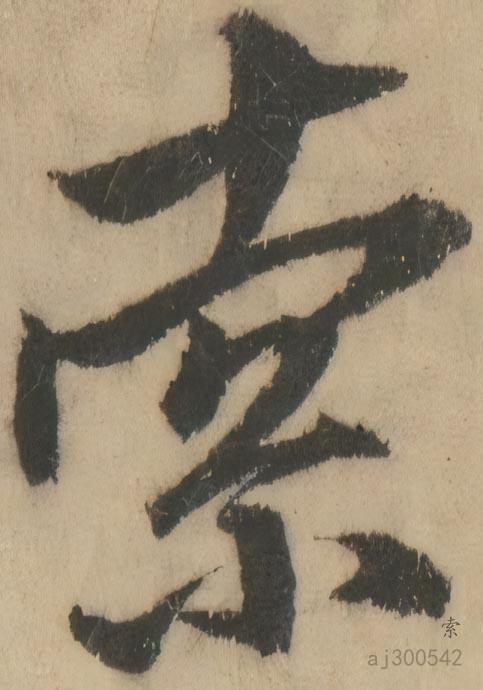 索
索
aj300542